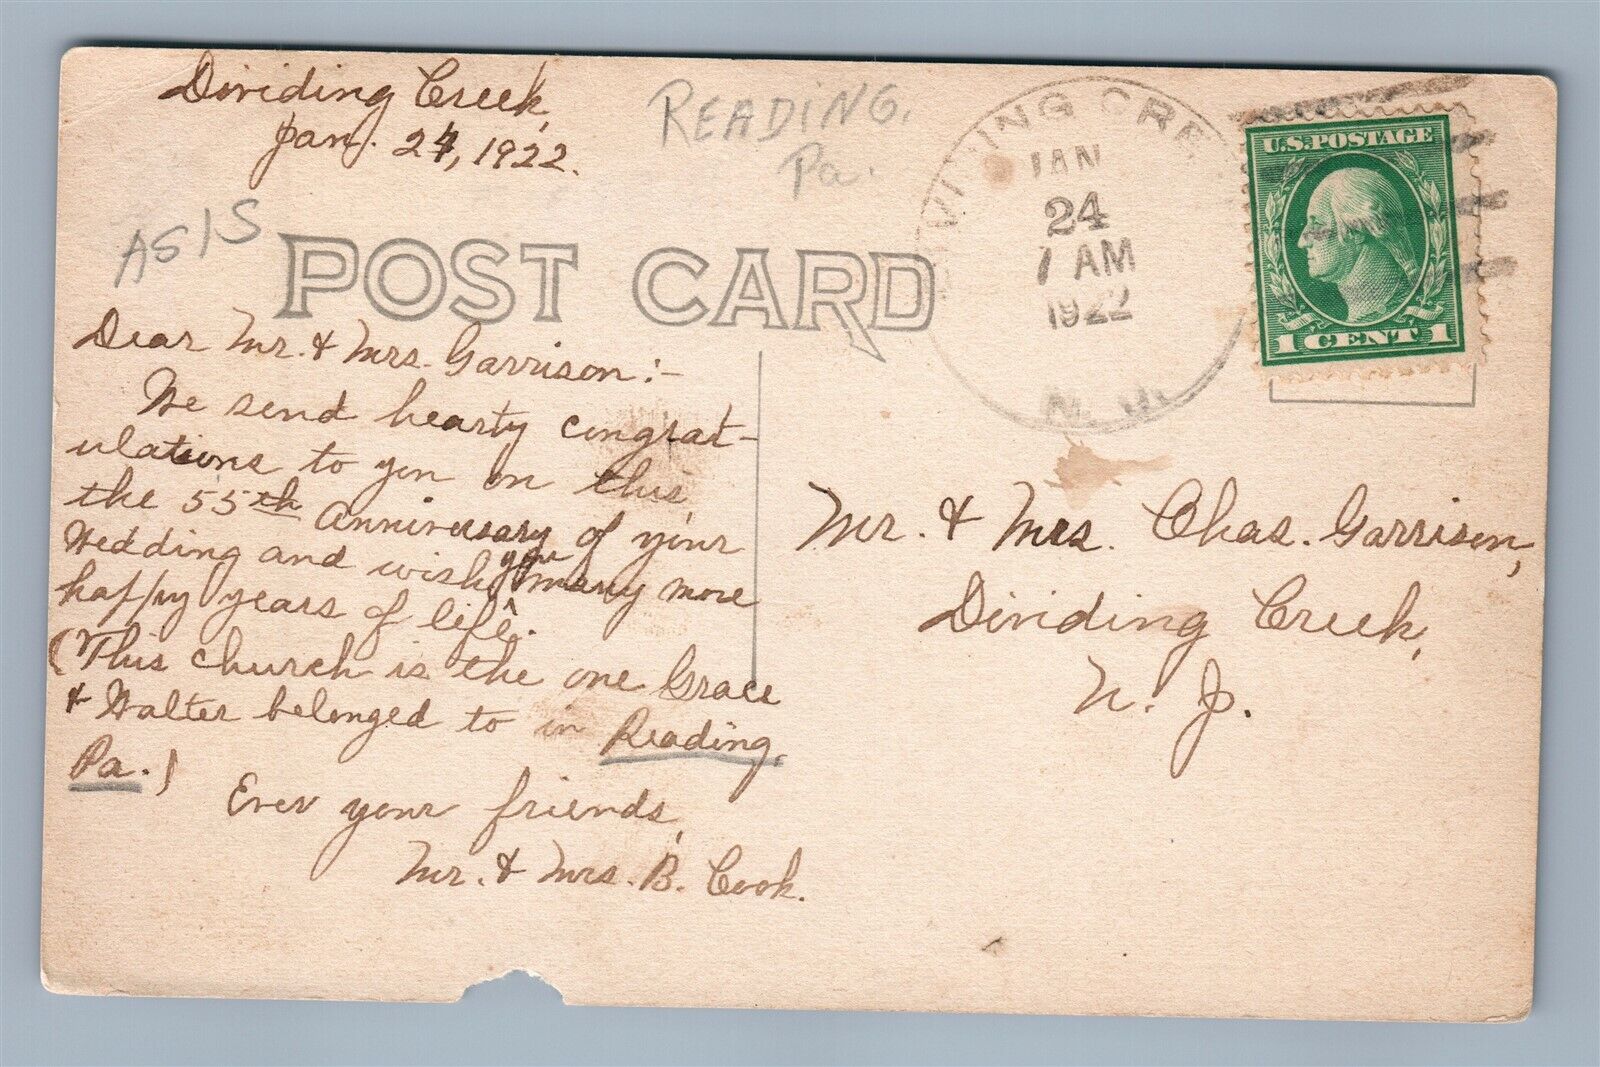 Dividing Creek,
Jan. 24, 1922.
READING,
Pa.
AS IS
POST CARD
DIVIDING CREEK
JAN
24
7 AM
1922
N.J.
U.S. POSTAGE
1 CENT 1
Dear Mr. & Mrs. Garrison:-
We send hearty congrat-
ulations to you on this,
the 55th Anniversary of your
Wedding and wish you many more
happy years of life.
(This church is the one Grace
& Walter belonged to in Reading,
Pa.)
Ever your friends,
Mr. & Mrs. B. Cook.
Mr. & Mrs. Chas. Garrison,
Dividing Creek,
N. J.